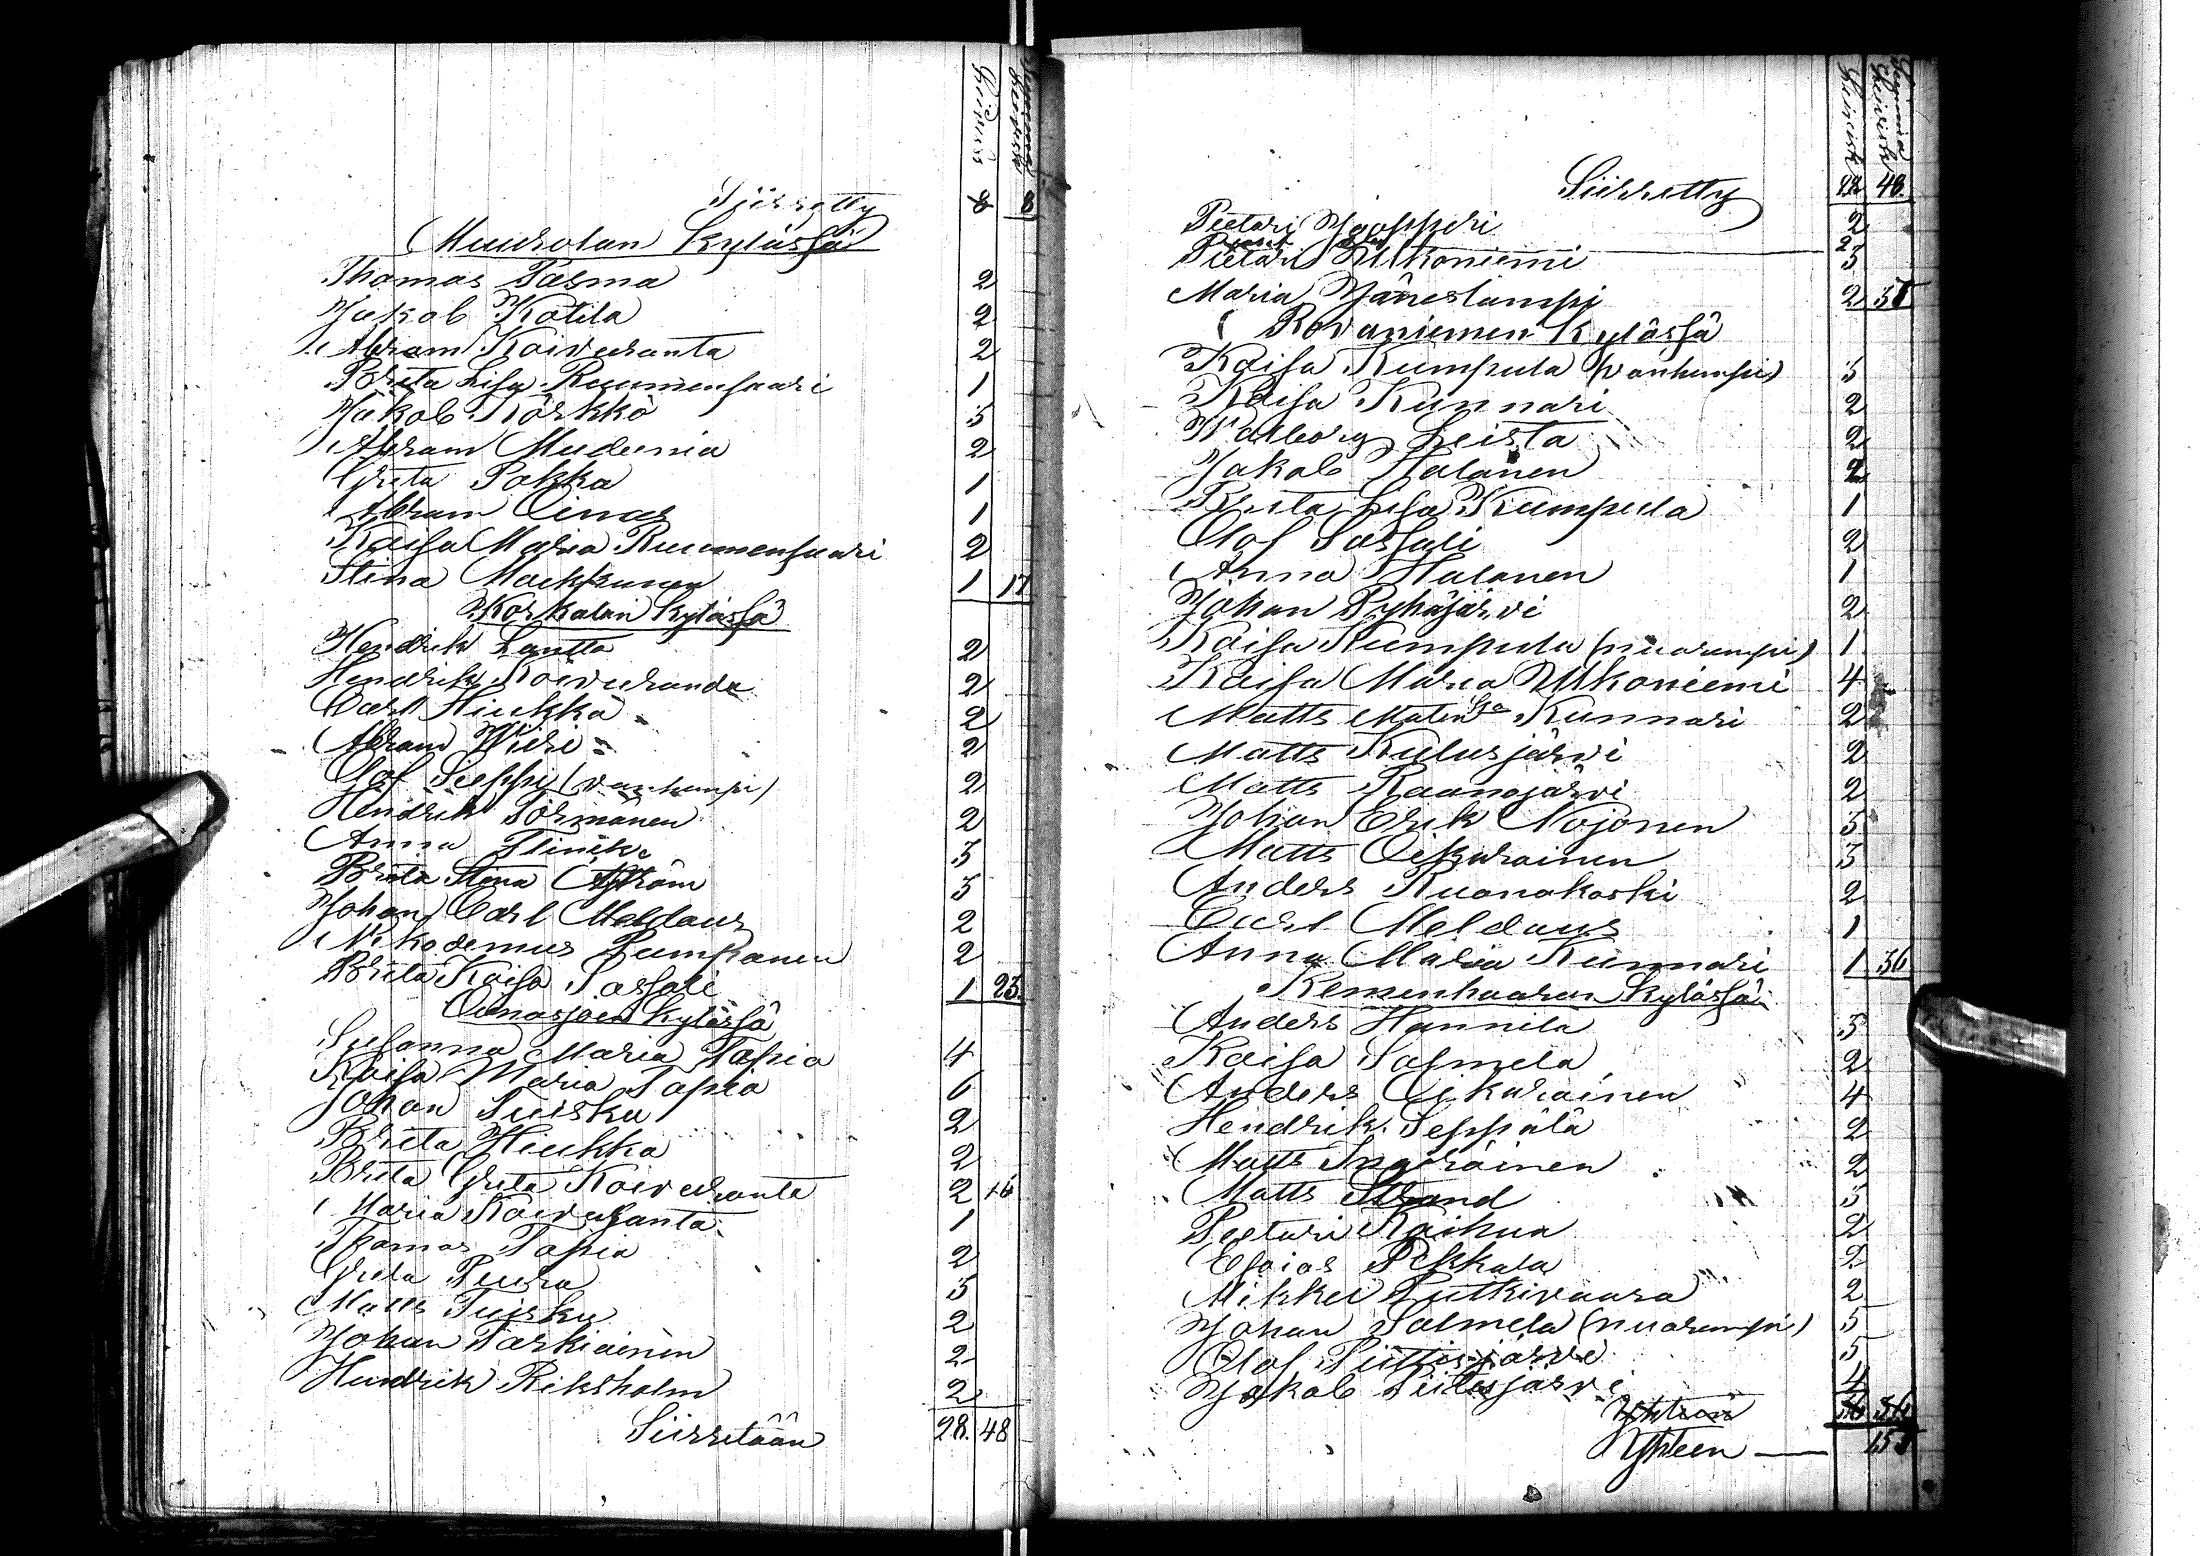 Leiviss
Siirretty 8 8
Muurolan Kylässä
Thomas Tasma 2
Jakob Kotila 2
Abram Koivuranta 2
Brita Lisa Ruumensaari 1
Jakob Körkkö 3
Abram Mudenia 2
Greta Pokka 1
Abram Oinas 1
Kaisa Maria Ruumensaari 2
Stina 1 17
Korkalon Kylässä
Hendrik Lautta 2
Hendrik Koivuranda 2
Carl Hiukka 2
Abram Wiiri 2
Olof Seppä (vanhempi) 2
Hendrik Sormänen 2
Anna Flinik 3
Brita Stina Aström 3
Johan Carl Meldaus 2
Nikodemus Lumpanen 2
Brita Kaisa Sassali 1 23
Ounasjoen Kylässä
Susanna Maria Tapio 4
Kaisa Maria Tapio 6
Johan Tuisku 2
Brita Hiukka 2
Brita Greta Koivuranta 2 16
Maria Koivuranta 1
Thomas Tapio 2
Greta Peura 3
Matts Tuisku 2
Johan Tarkiainen 2
Hendrik Riksholm 2
Siirretään 28. 48
Siirretty 28 48
Pietari Jopperi 2
Pietari Ulkoniemi 3
Maria Jäneslampi 2
Rovaniemen Kylässä
Kaisa Kumpula (vanhempi) 3
Kaisa Kunnari 2
Walborg Leista 2
Jakob Halanen 2
Brita Lisa Kumpula 1
Olof Sassali 2
Anna Halanen 1
Johan Pyhäjärvi 2
Kaisa Kumpula (nuorempi) 1
Kaisa Maria Ulkoniemi 4
Matts Matin Kunnari 2
Matts Kulusjärvi 2
Matts Raanojärvi 2
Johan Erik Nojonen 3
Matts Oikarainen 3
Anders Ruonakoski 2
Carl Meldaus 1
Anna Maria Kunnari 1 36
Kemenhaaran Kylässä
Anders Hannila 3
Kaisa Salmela 2
Anders Oikarainen 4
Hendrik Seppälä 2
Matts Inqeräinen 2
Matts Strand 3
Pietari Kaihua 2
Esaias Pekkala 2
Mikkel Putkivaara 2
Johan Salmela (nuorempi) 5
Olof Siittisjärvi 5
Jakob 4
Yhteen
Yhteen